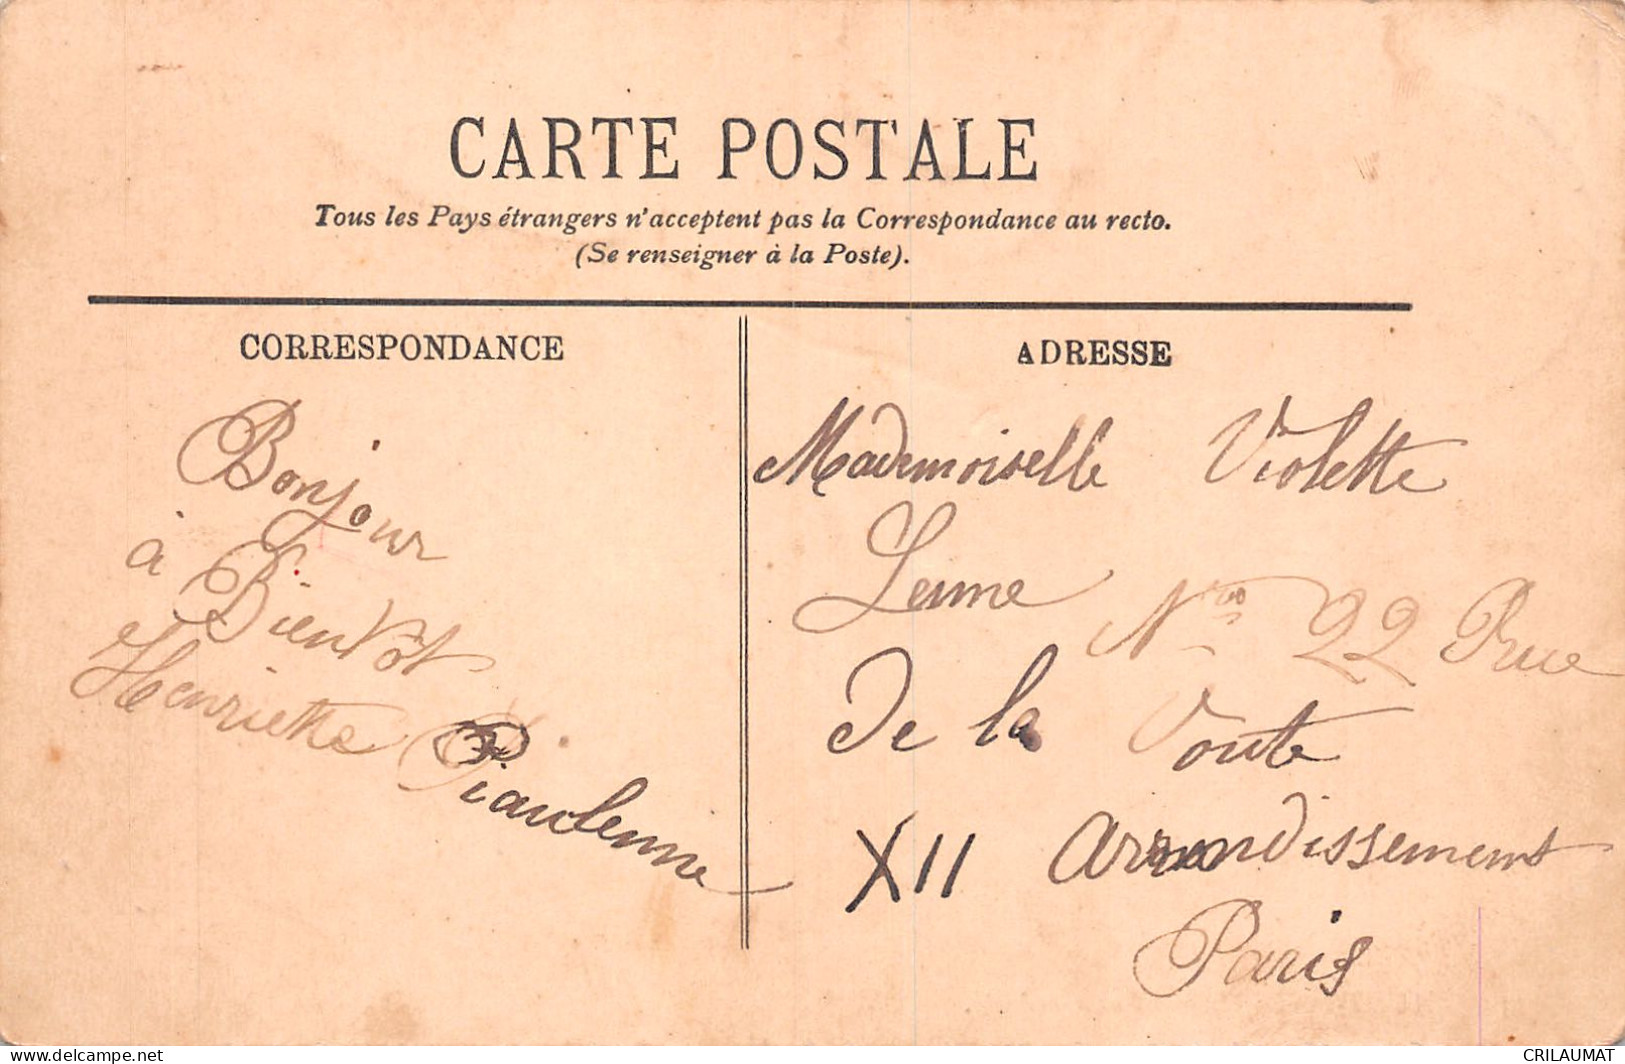 CARTE POSTALE
Tous les Pays étrangers n'acceptent pas la Correspondance au recto.
(Se renseigner à la Poste).
CORRESPONDANCE
Bonjour
à Bientôt
Henriette
ADRESSE
Mademoiselle Violette
No 22 Rue
De la Voute
XII Arrondissement
Paris
delcampe.net
CRILAUMAT